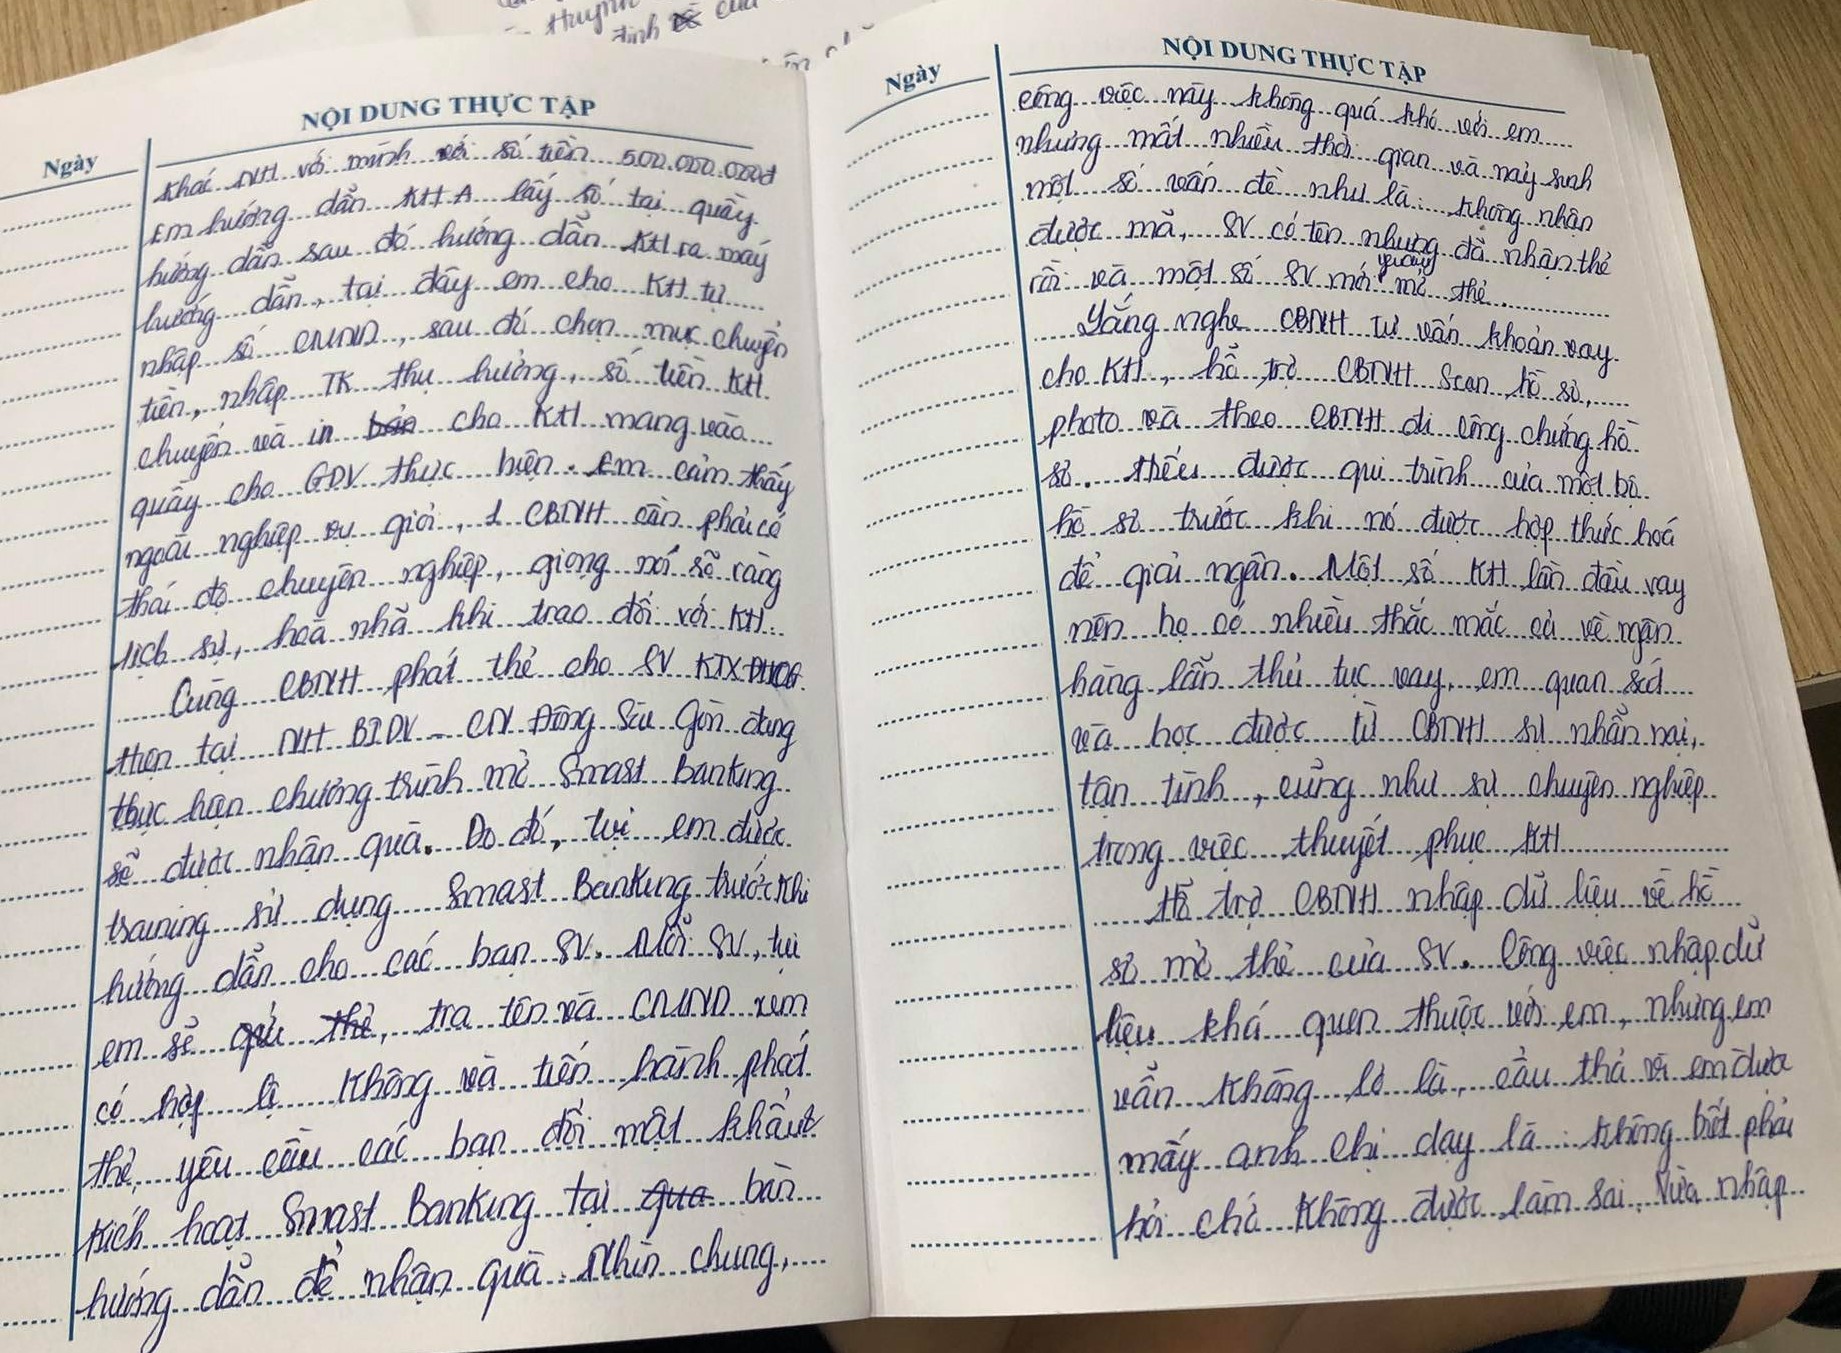 Huỳnh
định của
NỘI DUNG THỰC TẬP
Ngày
khác NH với mình với số tiền 500.000.000đ
Em hướng dẫn KH A lấy số tại quầy
hướng dẫn sau đó hướng dẫn KH ra máy
hướng dẫn, tại đây em cho KH tự
nhập số CMND, sau đó chọn mục chuyển
tiền, nhập TK thụ hưởng, số tiền KH
chuyển và in bản cho KH mang vào
quầy cho GDV thực hiện. Em cảm thấy
ngoài nghiệp vụ giỏi, 1 CBNH cần phải có
thái độ chuyên nghiệp, giọng nói rõ ràng
lịch sự, hoà nhã khi trao đổi với KH.
Cùng CBNH phát thẻ cho SV KTX ĐHQG.
Hiện tại NH BIDV - CN Đông Sài Gòn đang
thực hiện chương trình mở Smart banking
sẽ được nhận quà. Do đó, tụi em được
training sử dụng Smart Banking trước khi
hướng dẫn cho các bạn SV. Mỗi SV, tụi
em sẽ thẻ, tra tên và CMND xem
có hợp lệ không và tiến hành phát
thẻ, yêu cầu các bạn đổi mật khẩu
kích hoạt Smart Banking tại qua bàn
hướng dẫn để nhận quà. Nhìn chung,
NỘI DUNG THỰC TẬP
Ngày
công việc này không quá khó với em
nhưng mất nhiều thời gian và nảy sinh
một số vấn đề như là: không nhận
được mã, SV có tên nhưng đã nhận thẻ
rồi và một số SV mới mở thẻ.
Lắng nghe CBNH tư vấn khoản vay
cho KH, hỗ trợ CBNH Scan hồ sơ,
photo và theo CBNH đi công chứng hồ
sơ. Hiểu được qui trình của một bộ
hồ sơ trước khi nó được hợp thức hoá
để giải ngân. Một số KH lần đầu vay
nên họ có nhiều thắc mắc cả về ngân
hàng lẫn thủ tục vay, em quan sát
và học được từ CBNH sự nhẫn nại,
tận tình, cũng như sự chuyên nghiệp
trong việc thuyết phục KH
Hỗ trợ CBNH nhập dữ liệu về hồ
sơ mở thẻ của SV. Công việc nhập dữ
liệu khá quen thuộc với em, nhưng em
vẫn không lơ là, cẩu thả vì em được
mấy anh chị dạy là: không biết phải
hỏi chớ không được làm sai. Vừa nhập